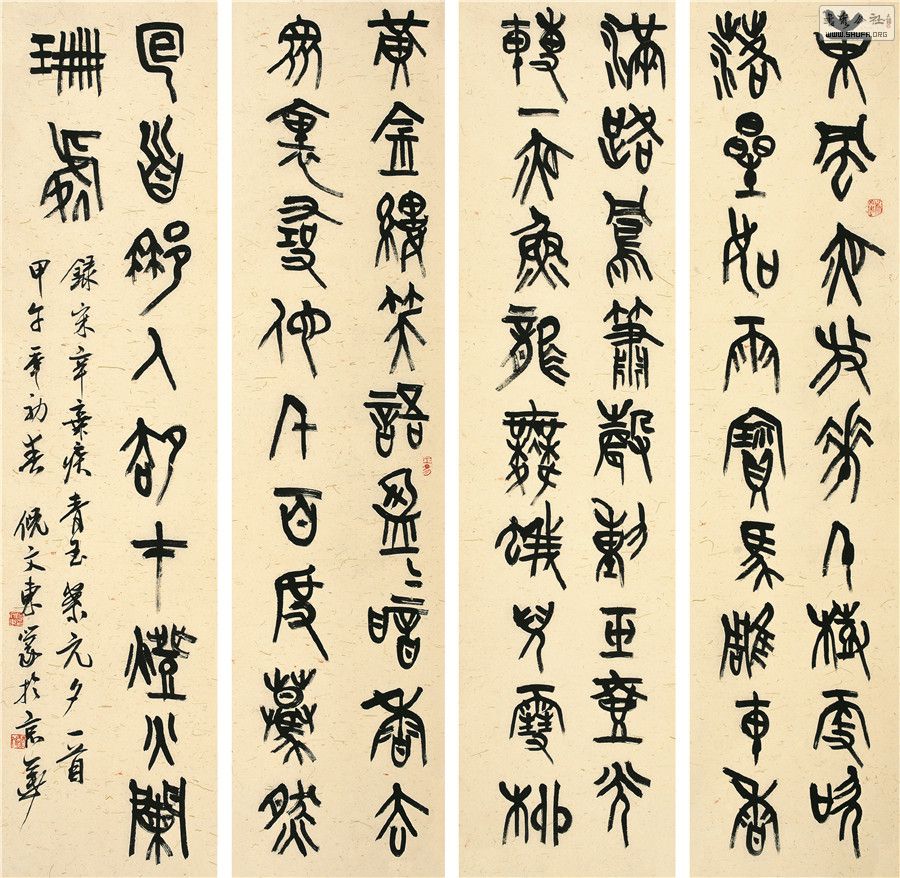 東風夜放花千樹更吹
落星如雨寶馬雕車香
滿路鳳簫聲動玉壺光
轉一夜魚龍舞蛾兒雪柳
黃金縷笑語盈〻暗香去
眾裏尋他千百度驀然
回首那人卻在燈火闌
珊處
錄宋辛棄疾青玉案元夕一首
甲午年初春 倪文東篆於京華
WWW.SHUFA.ORG